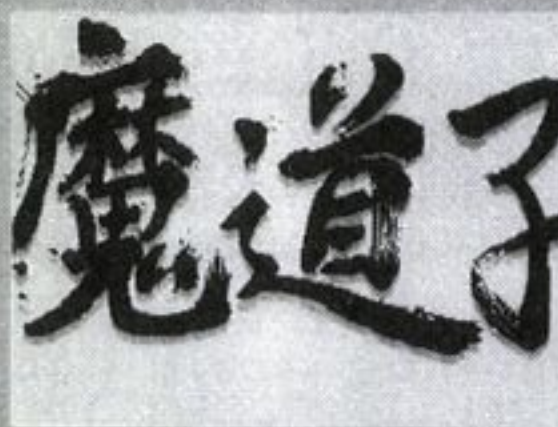 魔道子